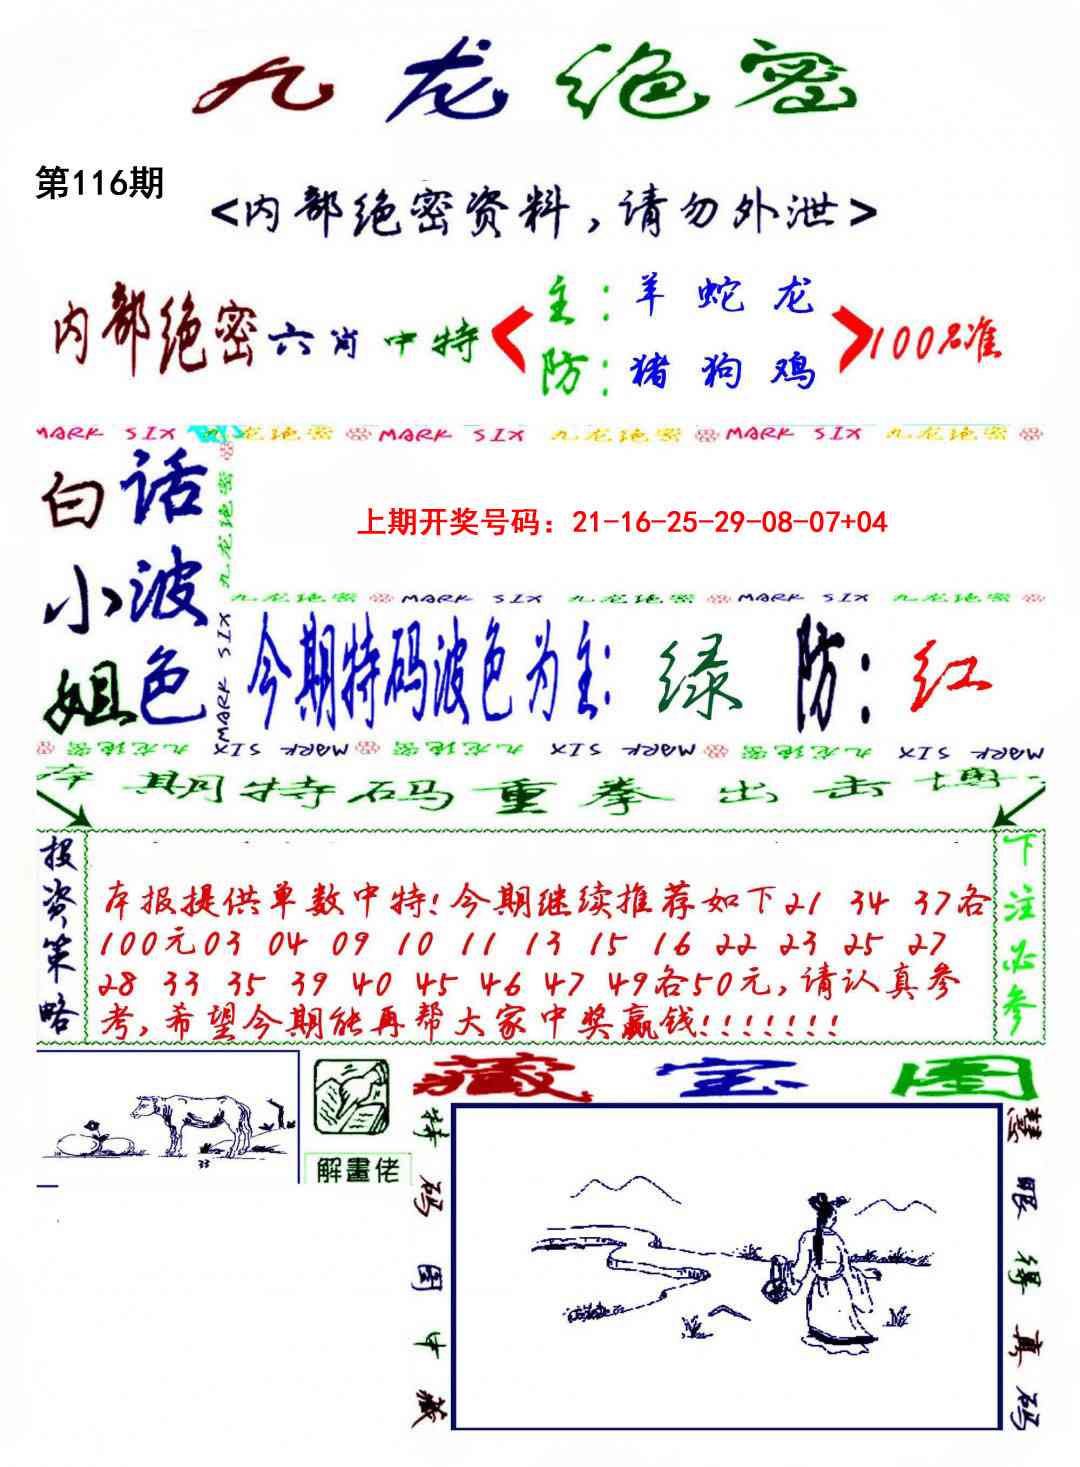 九龙绝密
第116期
<内部绝密资料,请勿外泄>
内部绝密六肖中特
主:羊 蛇 龙
防:猪 狗 鸡
100%准
MARK SIX 九龙绝密 MARK SIX 九龙绝密 MARK SIX 九龙绝密
白小姐
话波色
九龙绝密
MARK SIX
上期开奖号码：21-16-25-29-08-07+04
九龙绝密 MARK SIX 九龙绝密 MARK SIX 九龙绝密
今期特码波色为主:绿 防:红
九龙绝密 MARK SIX 九龙绝密 MARK SIX 九龙绝密 MARK SIX
本期特码重拳出击博
投资策略
本报提供单数中特!今期继续推荐如下21 34 37各
100元03 04 09 10 11 13 15 16 22 23 25 27
28 33 35 39 40 45 46 47 49各50元,请认真参
考,希望今期能再帮大家中奖赢钱!!!!!!!
下注必参
33
解畫佬
藏宝图
特码图中藏
慧眼得真码